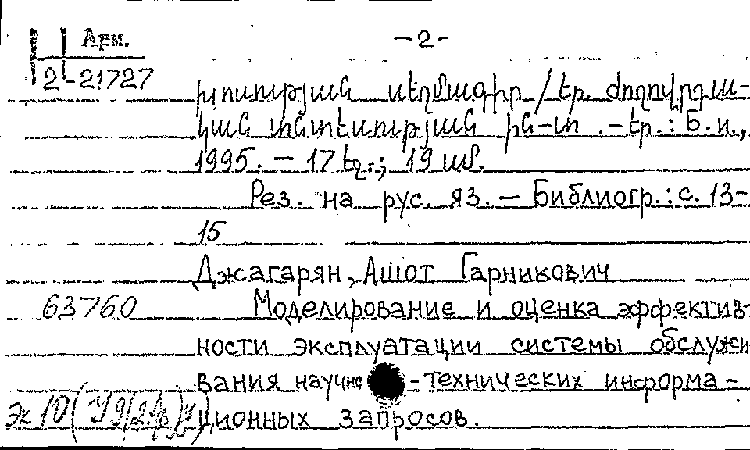 Арм. -2-
2-21727
խոսության սեղմագիր / Եր. ժողովրդա-
կան տնտեսության ին-տ .- Եր. : Б. и.,
1995. - 17 էջ.; 19 սմ.
Рез. на рус. яз. - Библиогр.: с. 13-
15
Джагарян, Ашот Гарникович
63760 Моделирование и оценка эффектив-
ности эксплуатации системы обслужи
вания научно-технических информа-
ционных запросов.